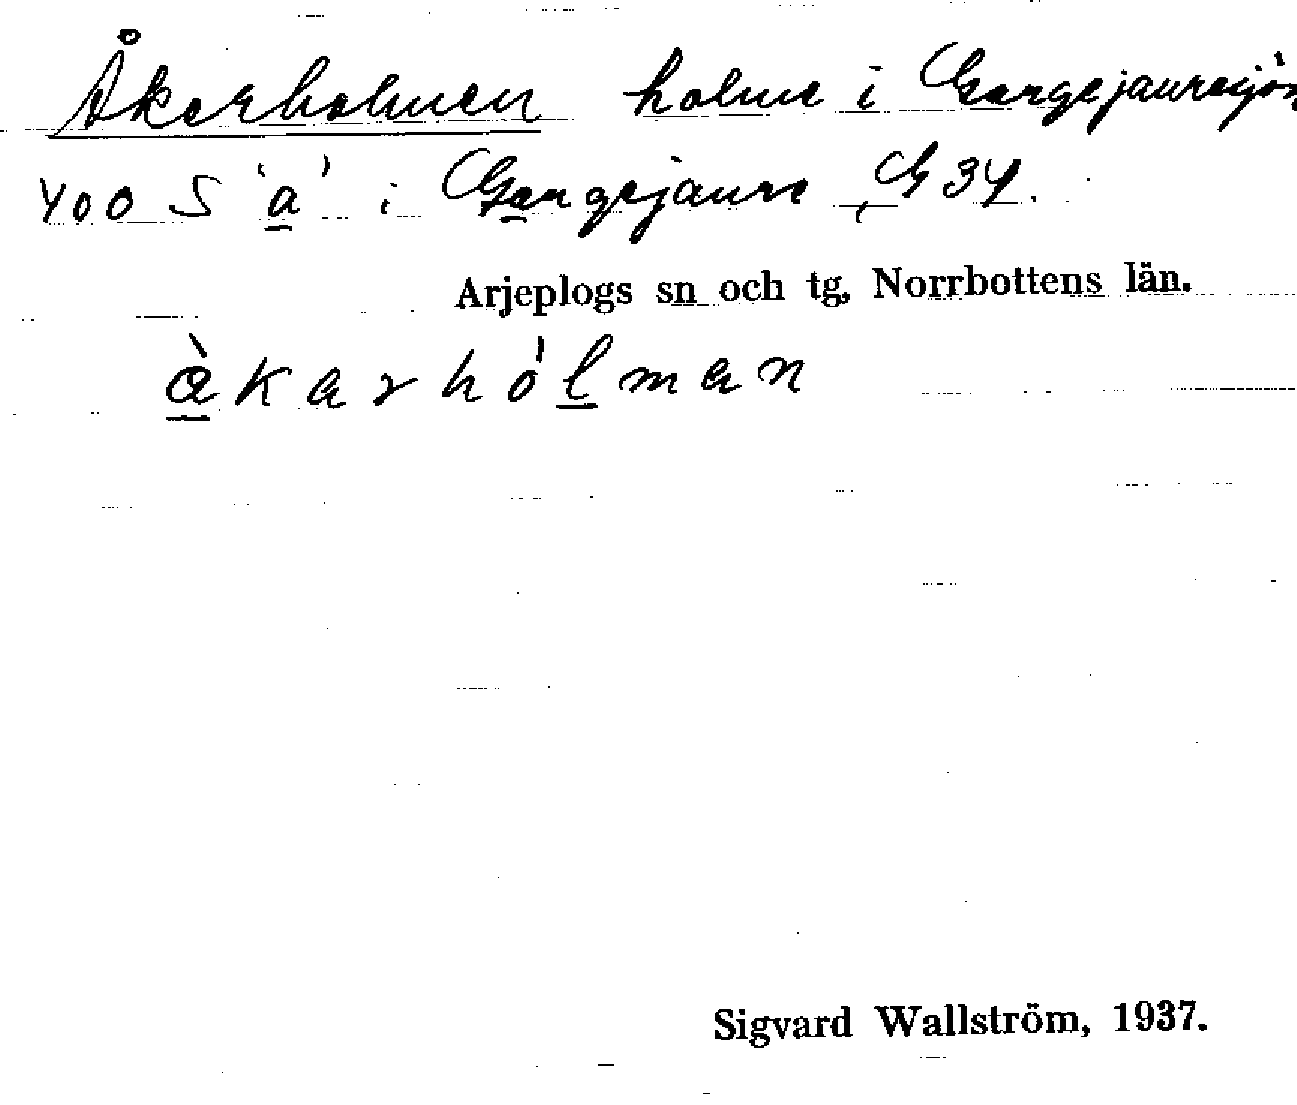 Åkerholmen holme i Gargejauresjön
400 S 'a' i Gargejaure, G 34.
Arjeplogs sn och tg, Norrbottens län.
àkarhólman
Sigvard Wallström, 1937.